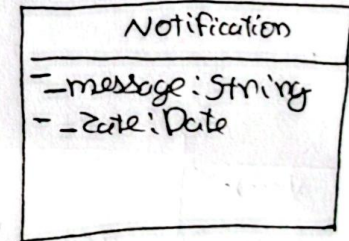 Notification
- _message: String
- _date: Date